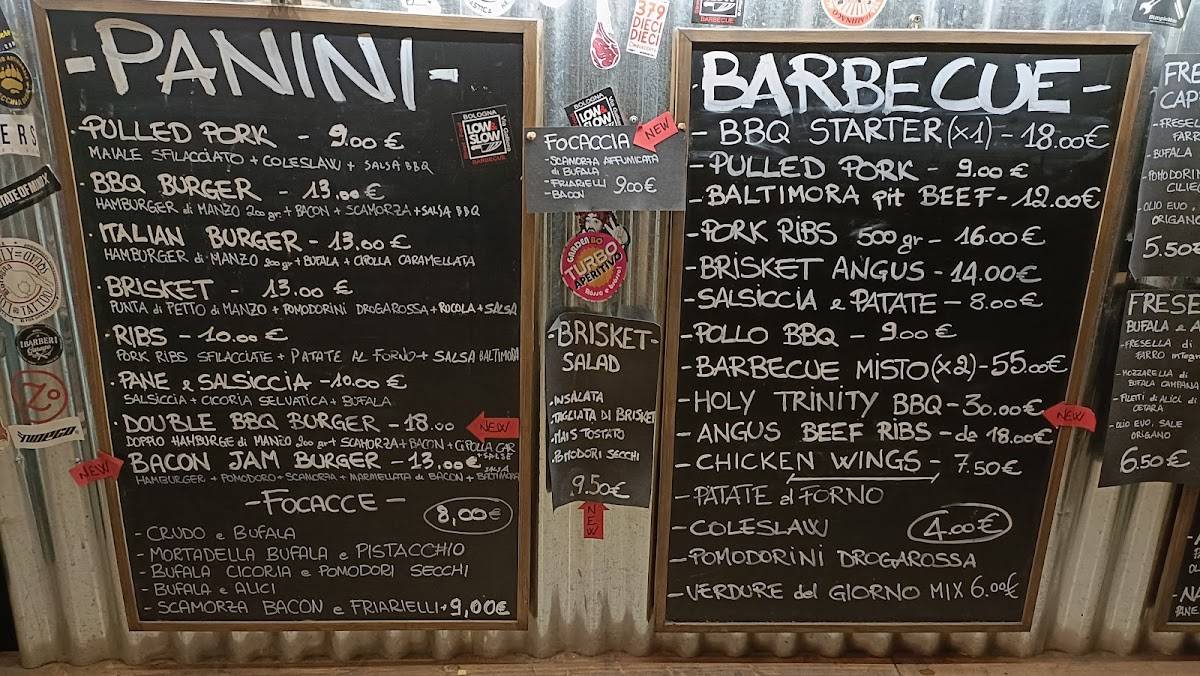 -PANINI-
- PULLED PORK - 9.00 €
MAIALE SFILACCIATO + COLESLAW + SALSA BBQ
- BBQ BURGER - 13.00 €
HAMBURGER di MANZO 200 gr. + BACON + SCAMORZA + SALSA BBQ
- ITALIAN BURGER - 13.00 €
HAMBURGER di MANZO 200 gr + BUFALA + CIPOLLA CARAMELLATA
- BRISKET - 13.00 €
PUNTA di PETTO di MANZO + POMODORINI DROGAROSSA + RUCOLA + SALSA
- RIBS - 10.00 €
PORK RIBS SFILACCIATE + PATATE AL FORNO + SALSA BALTIMORA
- PANE e SALSICCIA - 10.00 €
SALSICCIA + CICORIA SELVATICA + BUFALA
- DOUBLE BBQ BURGER - 18.00
NEW
DOPPIO HAMBURGE di MANZO 200 gr + SCAMORZA + BACON + CIPOLLA CAR
+ SALSE
NEW
BACON JAM BURGER - 13.00 €
HAMBURGER + POMODORO + SCAMORZA + MARMELLATA di BACON + SALSA BALTIMORA
- FOCACCE -
8,00€
- CRUDO e BUFALA
- MORTADELLA BUFALA e PISTACCHIO
- BUFALA CICORIA e POMODORI SECCHI
- BUFALA e ALICI
- SCAMORZA BACON e FRIARIELLI - 9,00€
BOLOGNA
LOW & SLOW
BARBECUE
BOLOGNA
LOW & SLOW
FOCACCIA
NEW
- SCAMORZA AFFUMICATA
di BUFALA
- FRIARIELLI 9.00€
- BACON
GARDEN BO
TURBO
APERITIVO
- BRISKET -
SALAD
- INSALATA
- TAGLIATA DI BRISKET
- MAIS TOSTATO
- POMODORI SECCHI
9.50€
NEW
- BARBECUE -
- BBQ STARTER (x1) - 18.00€
- PULLED PORK - 9.00€
- BALTIMORA pit BEEF - 12.00€
- PORK RIBS 500 gr - 16.00€
- BRISKET ANGUS - 14.00€
- SALSICCIA e PATATE - 8.00€
- POLLO BBQ - 9.00€
- BARBECUE MISTO (x2) - 55.00€
- HOLY TRINITY BBQ - 30.00€
NEW
- ANGUS BEEF RIBS - da 18.00€
- CHICKEN WINGS - 7.50€
- PATATE al FORNO
- COLESLAW
4.00€
- POMODORINI DROGAROSSA
- VERDURE del GIORNO MIX 6.00€
379
DIECI
DIECI
BARBECUE
BARBER
FRE
CAP
- FRESEL
FARR
- BUFALA
- POMODORIN
CILIE
- OLIO EVO,
ORIGANO
5.50€
FRESE
BUFALA e A
- FRESELLA di
FARRO integra
- MOZZARELLA di
BUFALA CAMPANA
- FILETTI di ALICI di
CETARA
- OLIO EVO, SALE
ORIGANO
6.50€